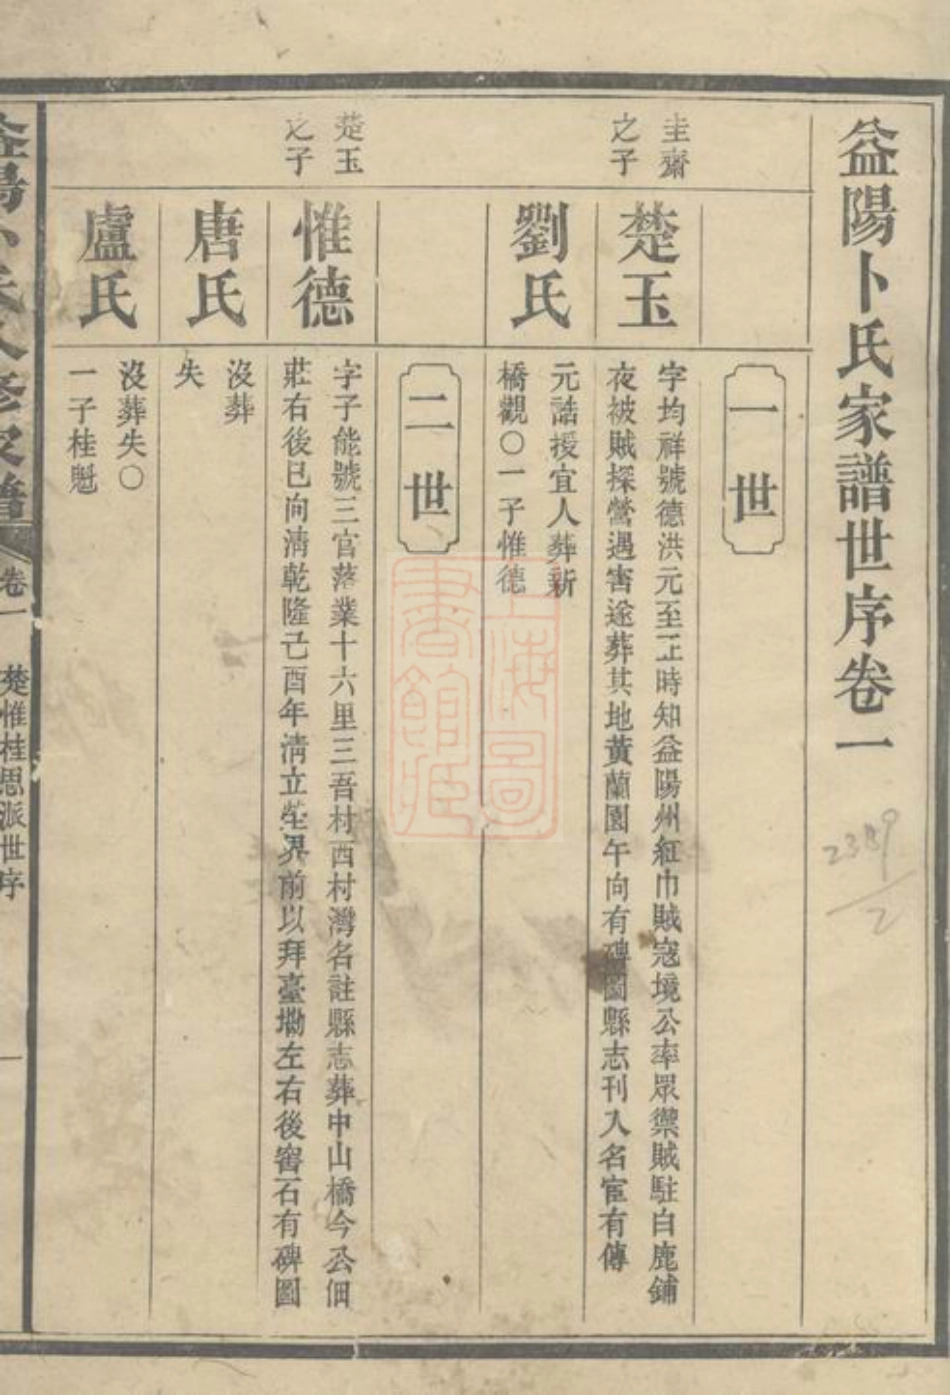 益陽卜氏家譜世序卷一
一世
圭齋
之子
楚玉
字均祥號德洪元至正時知益陽州紅巾賊寇境公率眾禦賊駐白鹿鋪
夜被賊探營遇害遂葬其地黃蘭園午向有碑圖縣志刊入名宦有傳
劉氏
元誥授宜人葬新
橋觀〇一子惟德
二世
楚玉
之子
惟德
字子能號三官落業十六里三吾村西村灣名註縣志葬中山橋今公佃
莊右後巳向清乾隆己酉年清立塋界前以拜臺墈左右後窖石有碑圖
唐氏
沒葬
失
盧氏
沒葬失〇
一子桂魁
卷一
楚惟桂思派世序
一
上海圖
書館藏
2389
2